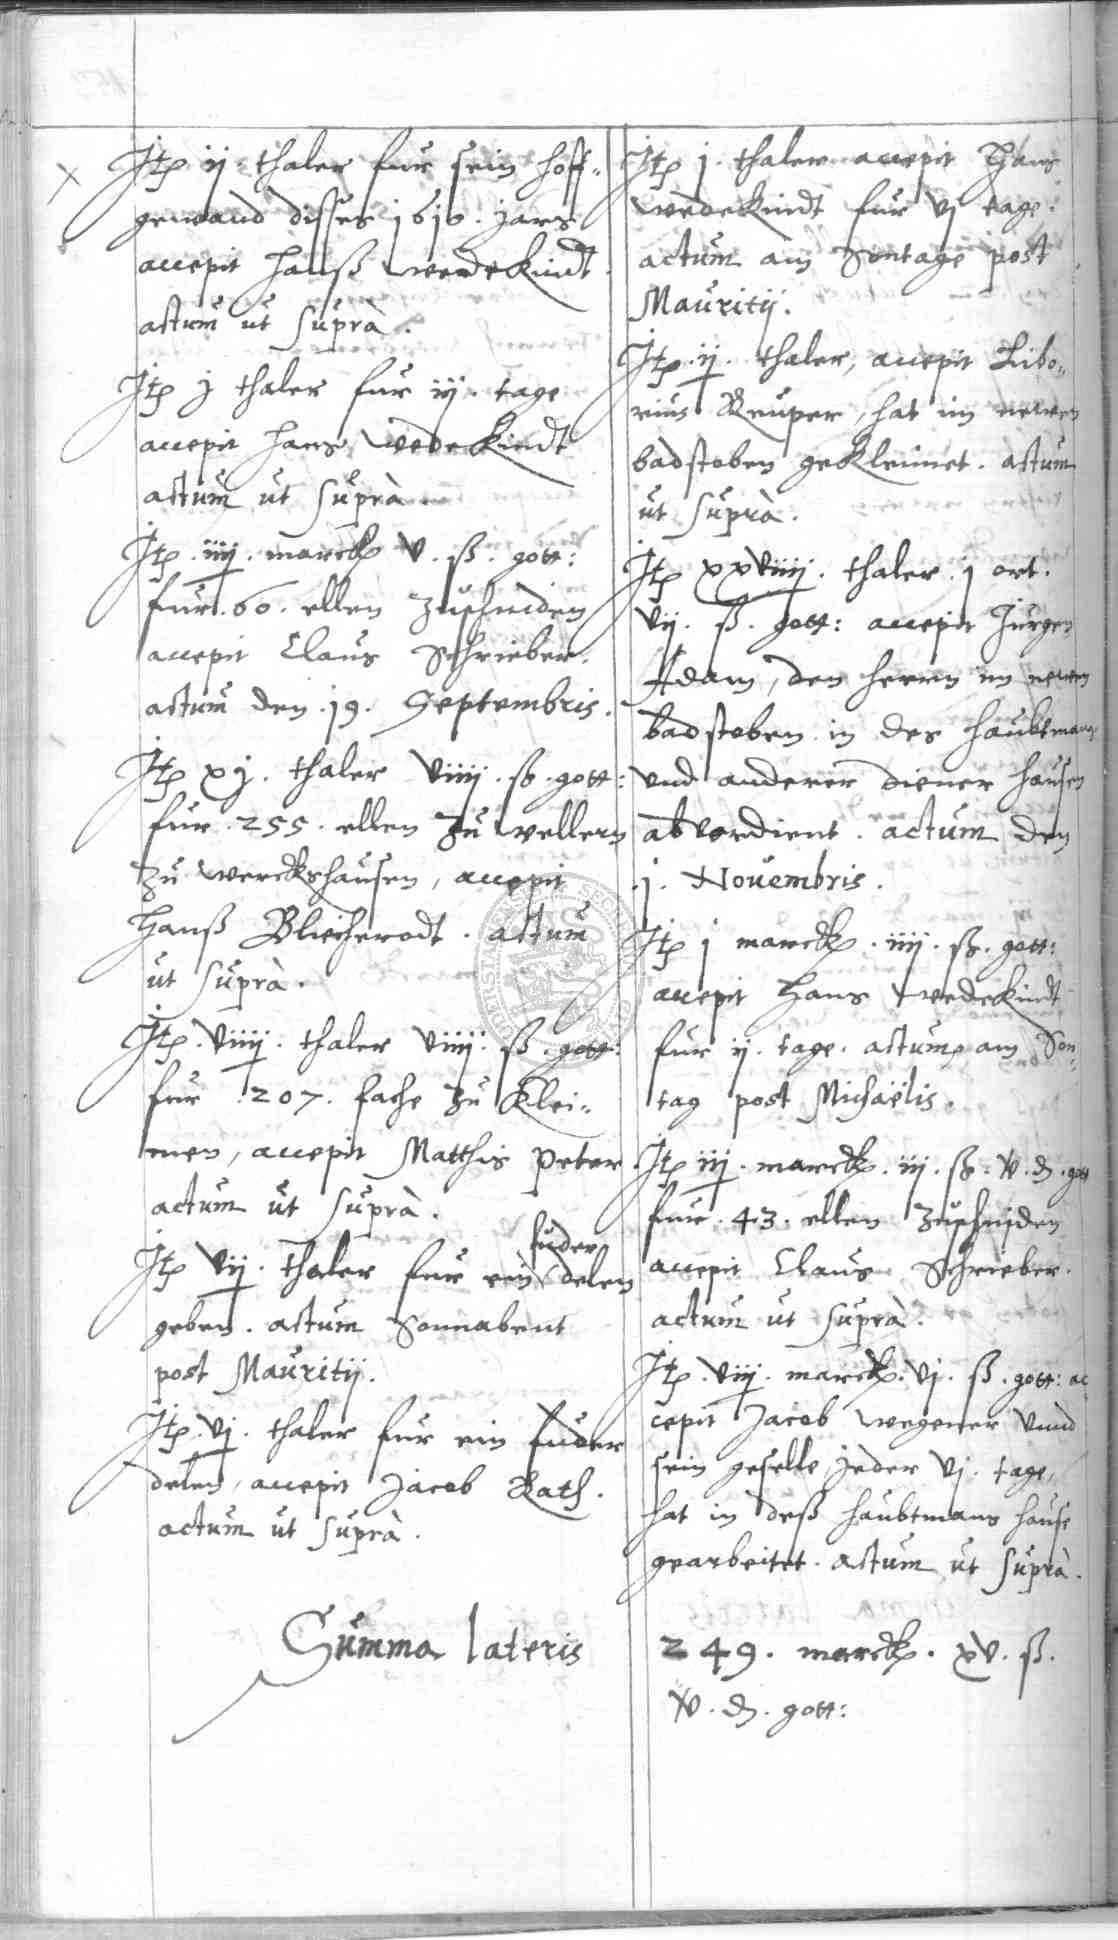 Itp ij. thaler fur sein hoff„
gewand disses 1610. jars
accepit Hanß Wedekindt.
actum ut suprà.
Itp j thaler fur iij. tage
accepit Hans Wedekindt
actum ut suprà.
Itp. iiij. marck v. ß. gott:
fur. 60. ellen Zuschniden
accepit Claus Schrieber.
actum den .19. Septembris.
Itp xj. thaler viiij. ß. gott:
fur .255. ellen Zu wellern
Zu Werckshausen, accepit
Hanß Bliecherodt. actum
ut suprà.
Itp. viiij. thaler viiij. ß. gott:
fur .207. fache Zu Klei„
men, accepit Matthis Peter.
actum ut suprà.
Itp vij. thaler fur ein fuder delen
geben. actum Sonnabent
post Mauritij.
Itp. vj. thaler fur ein fuder
delen, accepit Jacob Rath.
actum ut suprà.
Itp j. thaler accepit Hans
Wedekindt fur vj tage.
actum am Sontage post
Mauritij.
Itp. ij. thaler, accepit Libo„
rius Reuper, hat im newen
badstoben gekleimet. actum
ut suprà.
Itp xxviiij. thaler. j ort.
vij. ß. gott: accepit Jurgen
Adam, den herrn im newen
badstoben in des haubtmans
und anderer diener hausen
abverdient. actum den
.j. Nouembris.
Itp j marck. iiij. ß. gott:
accepit Hans Wedekindt
fur ij. tage. actum am Son„
tag post Michaëlis.
Itp iij. marck. iij. ß. v. d. gott
fur .43. ellen Zuschniden
accepit Claus Schrieber.
actum ut suprà.
Itp. viij. marck. vj. ß. gott: ac
cepit Jacob Wegener vnnd
sein geselle, jeder vj. tage,
hat in deß haubtmans hause
gearbeitet. actum ut suprà.
Summa lateris 249. marck. xv. ß.
v. d. gott: